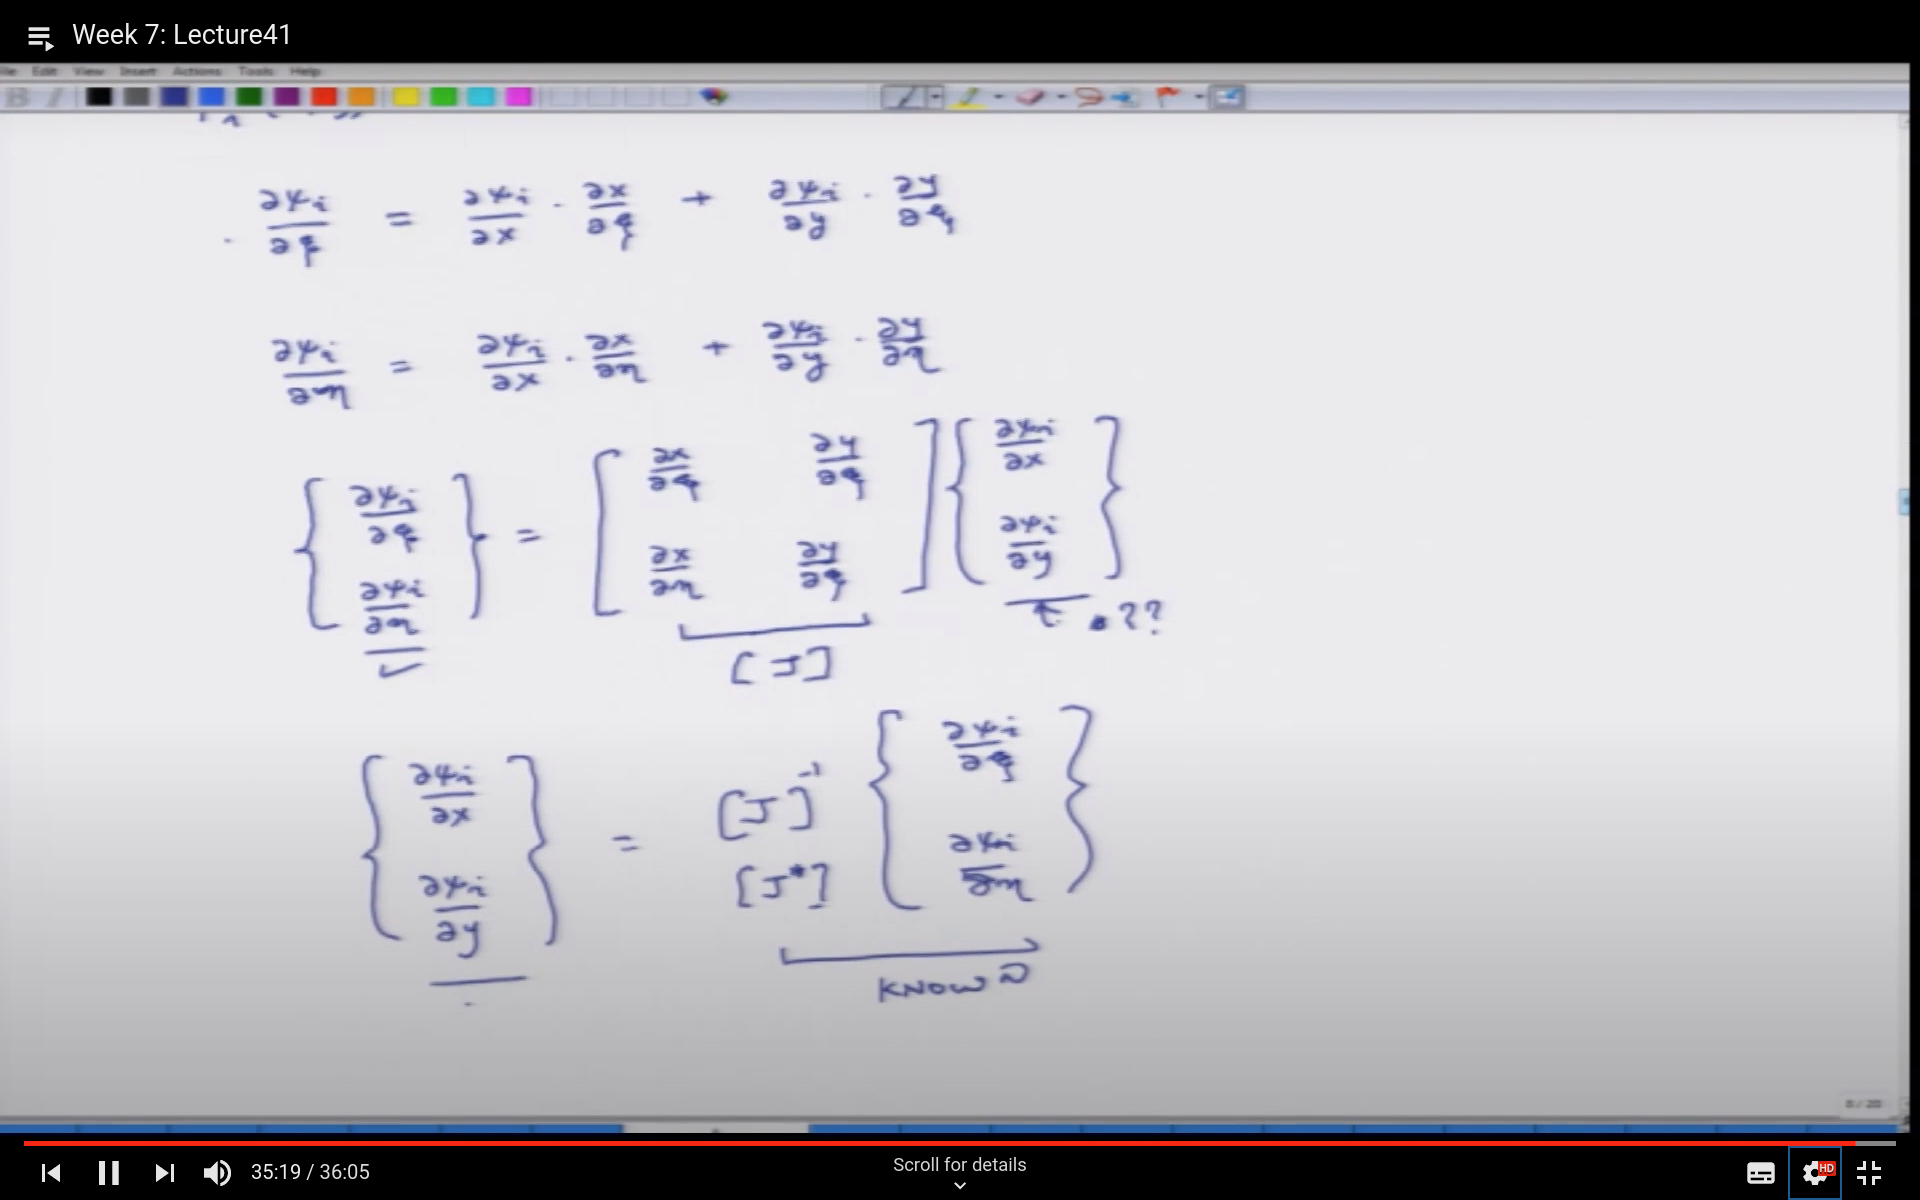 Week 7: Lecture41
File Edit View Insert Actions Tools Help
∂ψi/∂ξ = ∂ψi/∂x · ∂x/∂ξ + ∂ψi/∂y · ∂y/∂ξ
∂ψi/∂η = ∂ψi/∂x · ∂x/∂η + ∂ψi/∂y · ∂y/∂η
{ ∂ψi/∂ξ ∂ψi/∂η } = [ ∂x/∂ξ ∂y/∂ξ ∂x/∂η ∂y/∂ξ ] { ∂ψi/∂x ∂ψi/∂y }
??
[J]
{ ∂ψi/∂x ∂ψi/∂y } = [J]⁻¹ { ∂ψi/∂ξ ∂ψi/∂η }
[J*]
KNOWN
8 / 20
35:19 / 36:05
Scroll for details
HD